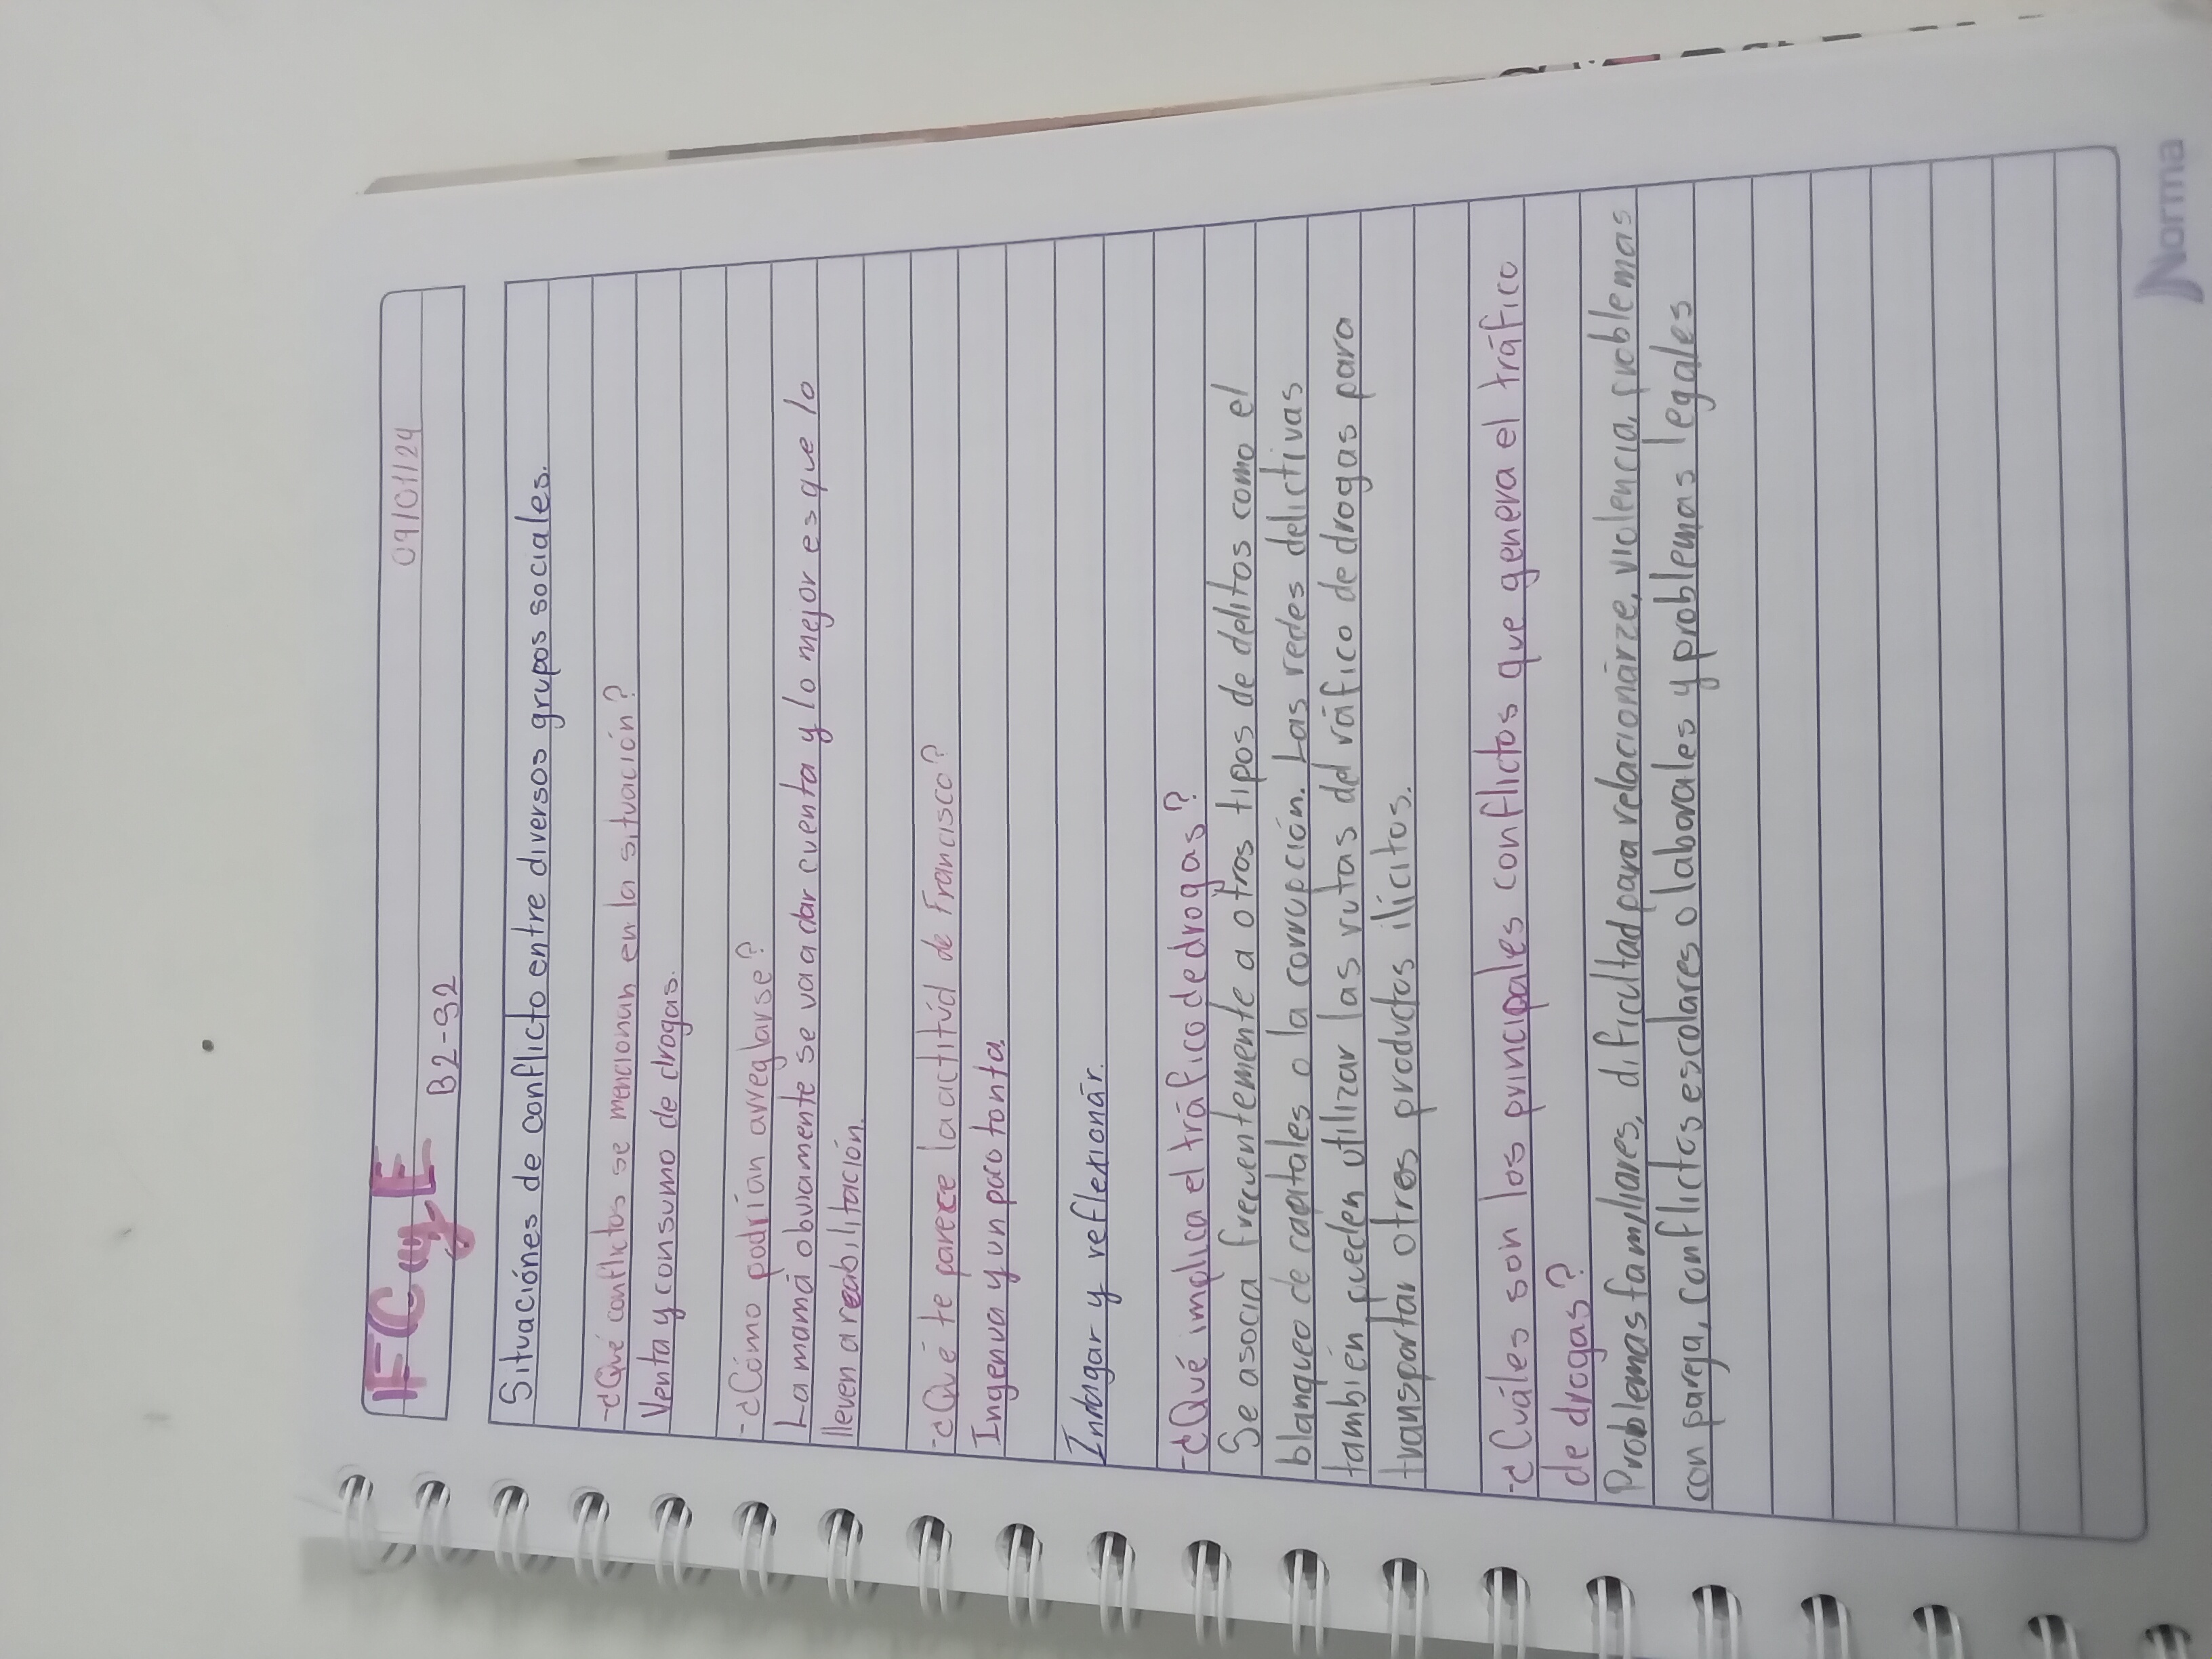 FCyE
09/01/24
B2-S2
Situaciónes de conflicto entre diversos grupos sociales.
-¿Qué conflictos se mencionan en la situación?
Venta y consumo de drogas.
-¿Cómo podrían arreglarse?
La mamá obviamente se va a dar cuenta y lo mejor es que lo
lleven a reabilitación.
-¿Qué te parece la actitúd de Francisco?
Ingenua y un poco tonta.
Indagar y reflexionár.
-¿Qué implica el tráfico de drogas?
Se asocia frecuentemente a otros tipos de delitos como el
blanqueo de capitales o la corrupción. Las redes delictivas
también pueden utilizar las rutas del ráfico de drogas para
transportar otros productos ilícitos.
-¿Cuáles son los principales conflictos que genera el tráfico
de drogas?
Problemas familiares, dificultad para relacionárze, violencia, problemas
con pareja, conflictos escolares o laborales y problemas legales
Norma